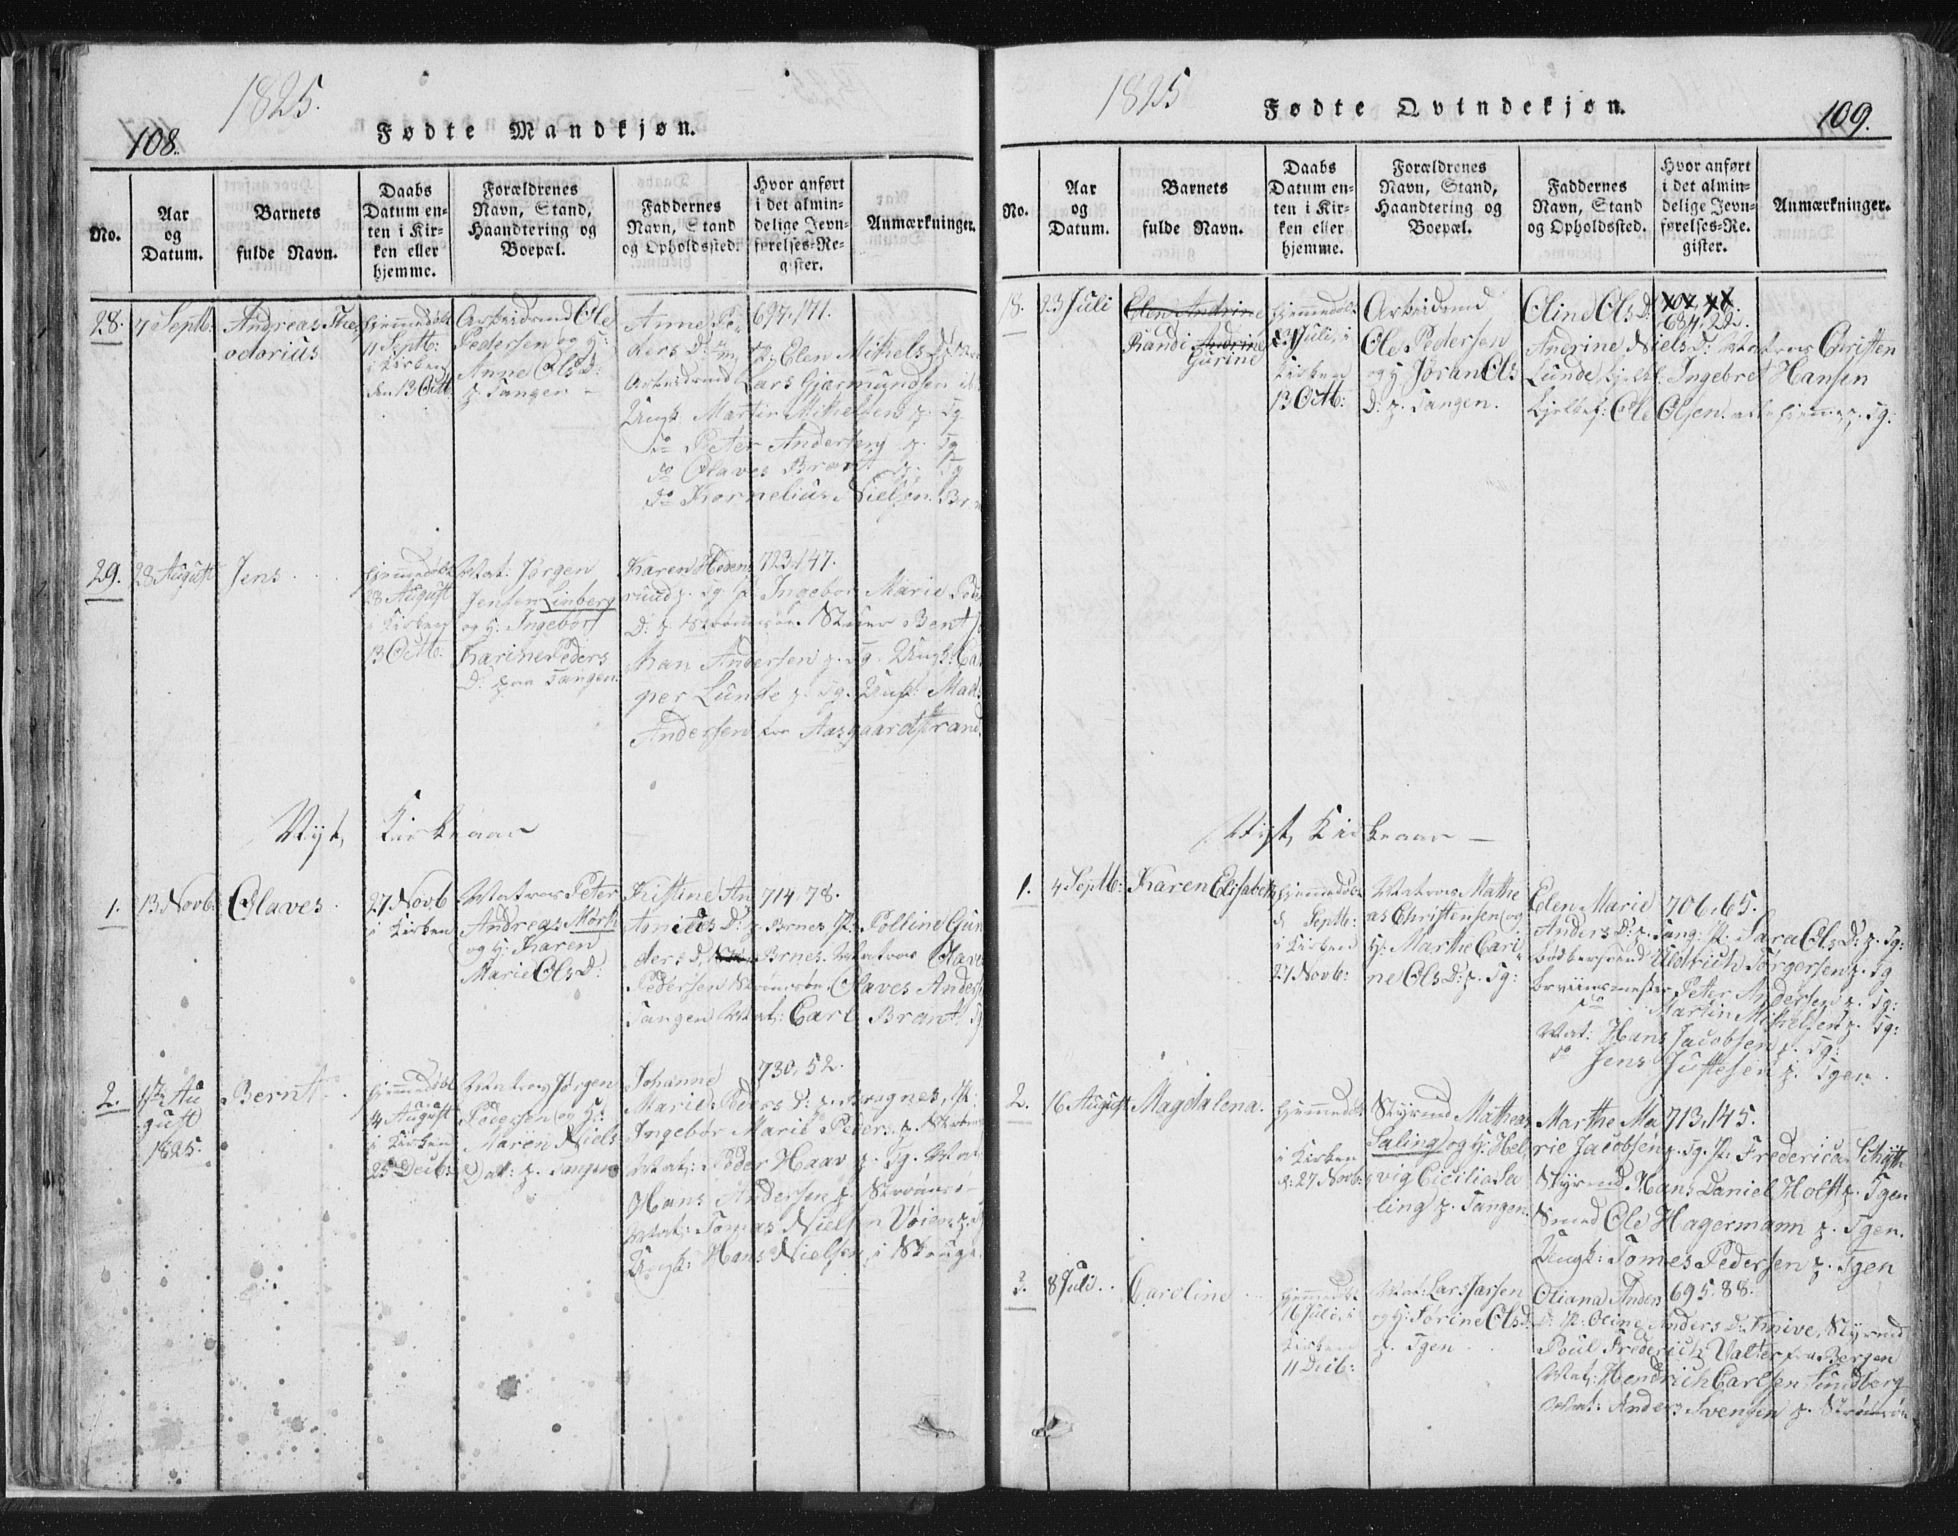 1825.
108.
Fødte Mandkjøn.
No.
Aar
og
Datum.
Barnets
fulde Navn.
Daabs
Datum en-
ten i Kir-
ken eller
hjemme.
Forældrenes
Navn, Stand,
Haandtering og
Boepæl.
Faddernes
Navn, Stand
og Opholdssted.
Hvor anført
i det almin-
delige Jevn-
førelses-Re-
gister.
Anmærkninger.
28.
7 Septb:
Andreas The
odorius
hjemmedøbt
11 Septb:
i Kirken
den 13 Octb
Arbeidsmd Ole
Pedersen og H:
Anne Ols D:
p. Tangen
697.171.
Anne Pe
ders D:
Elen Mikels D:
Arbeidsmd Lars Gjermundsen
Ungk. Martin Mikelsen p. Tg
do Peter Andersen p. Tg
do Olaves Brant p. Tg
do Kornelius Nielsen Br
29.
28 August
Jens
hjemmedøbt
28 August
i Kirken
13 Octb:
Mat: Jørgen
Jensen Linberg
og H. Ingebor
Karine Peders
D: paa Tangen
723.147.
Karen Hedens
rud p. Tg. Ingebor Marie Peder
D: p. Strømsøe. Bent
Andersen p. Tg. Ungk: Cas
per Lunde p. Tg. Ungk. Mads
Andersen fra Aasgaardstrand
Nyt Kirkeaar
1.
13 Novb:
Olaves
27 Novb
i Kirken
Matros Peter
Andreas Mørk
og H: Karen
Marie Ols D:
714.78.
Kistine An
D: p. Brnes Polline Gun
ders D: Brnes. Matros Olaves
Pedersen Strømsøe. Olaves Anders
Tangen Mat: Carl Brant Tg
2.
Au
gust
1825.
Bernt
hjemmedøbt
4 August
i Kirken
25 Decb:
Matros Jørgen
Pedersen og H:
Maren Niels
Dat: p. Tangen
730.52.
Johanne
Marie Peders D:
Ingebor Marie Peders p. Strøms
Mat: Peder Haav p. Tg. Mat
Hans Andersen p. Strømsø
Mat: Tomas Nielsen
Ungk: Hans Nielsen i Skouge
1825
109.
Fødte Qvindekjøn.
No.
Aar
og
Datum.
Barnets
fulde Navn.
Daabs
Datum en-
ten i Kir-
ken eller
hjemme.
Forældrenes
Navn, Stand,
Haandtering og
Boepæl.
Faddernes
Navn, Stand
og Opholdssted.
Hvor anført
i det almin-
delige Jevn-
førelses-Re-
gister.
Anmærkninger.
18.
23 Juli
Elen Andrine
Randi Andrine
Gurine
hjemmedøbt
Juli, i
Kirken
13 Octb:
Arbeidsmd
Ole Pedersen
og H. Jøran Ols
D: p. Tangen.
684.22.
Oline Ols D:
Andrine Niels D: Matros Christen
Lunde Ingebret Hansen
Ole Olsen p. Tg:
Nyt Kirkeaar
1.
4 Septb:
Karen Elisabeth
hjemmedøbt
Septb:
i Kirken
27 Novb:
Matros Mathe
as Christensen og
H: Marthe Cari
ne Ols D: p. Tg:
706.65.
Elen Marie
Anders D: p. Tang: Sara Ols D: p. Tg:
Uldrich Jørgersen p. Tg
Peter Andersen p. Tg:
do Martin Mikelsen p. Tg:
Mat: Hans Jacobsen p. Tg:
do Jens Justesen p. Tgen
2.
16 August
Magdalena.
hjemmedøbt
i Kirken
d: 27 Novb:
Styrmd Matheas
Saling og H: Hel
vig Cicilia Sa
ling p. Tangen
713.145.
Marthe Ma
rie Jacobsen p. Tg. Frederica Schytt
Styrmd Hans Daniel Holst p. Tgen
Smed Ole Hagermann p. Tgen.
Ungk: Tomes Pedersen p. Tgen
3.
8 Juli
Caroline
hjemmedøbt
16 Juli, i
Kirken
11 Decb:
Mat: Lars Larsen
og H: Tørine Ols D:
p. Tgen
695.88.
Oliana Anders
D: Oline Anders D: Knive, Styrmd
Poul Frederich Valter fra Bergen
Mat: Hendrich Carlsen Sundberg
Mat: Anders Svensen p. Strømsø